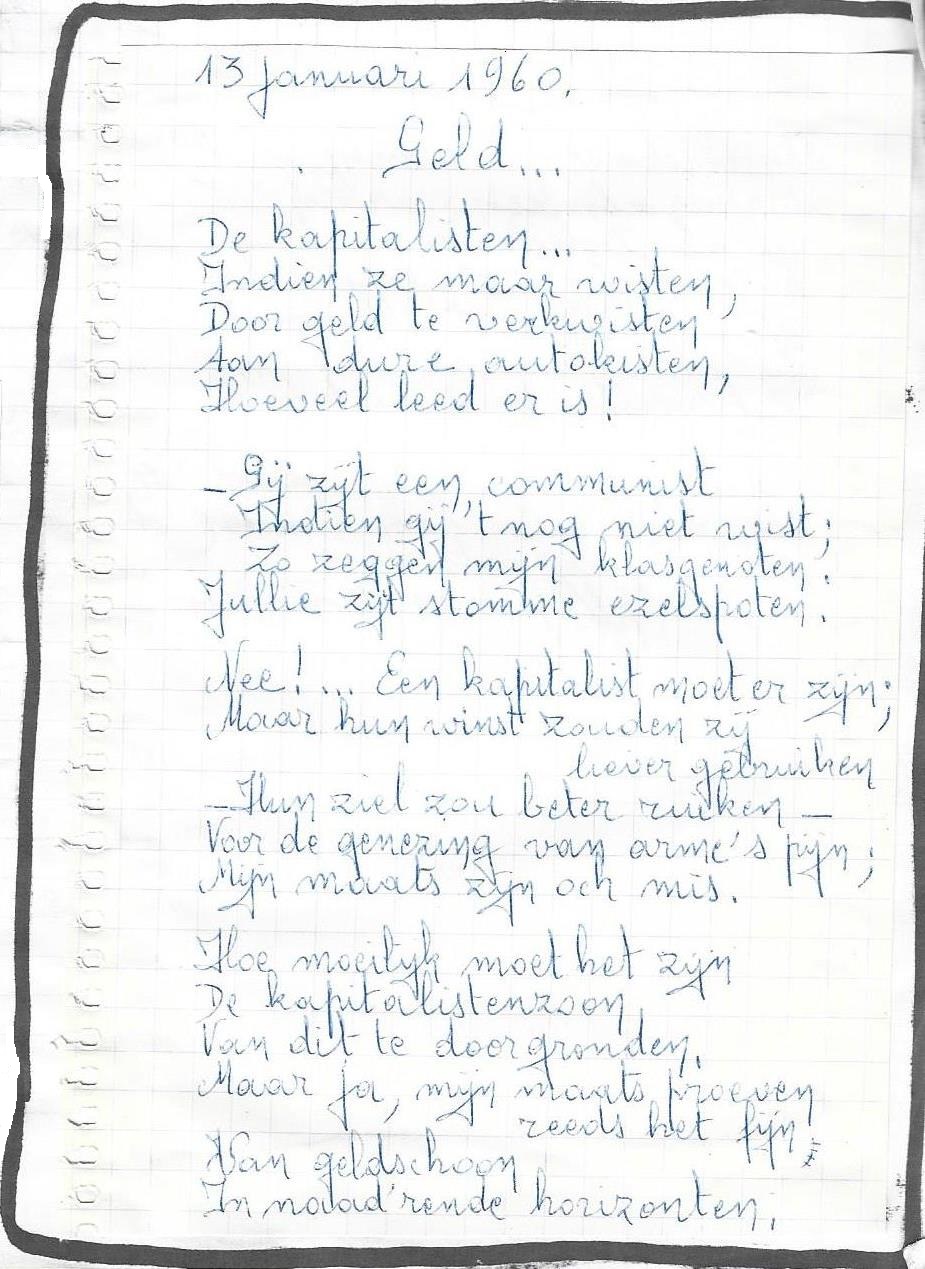 13 Januari 1960.
Geld...
De kapitalisten...
Indien ze maar wisten,
Door geld te verkwisten
Aan dure autokisten,
Hoeveel leed er is!
- Gij zijt een communist
Indien gij 't nog niet wist;
Zo zeggen mijn klasgenoten.
Jullie zijt stomme ezelspoten.
Nee!... Een kapitalist moet er zijn;
Maar hun winst zouden zij
liever gebruiken
- Hun ziel zou beter ruiken -
Voor de genezing van arme's pijn;
Mijn maats zijn och mis.
Hoe moeilijk moet het zijn
De kapitalistenzoon
Van dit te doorgronden.
Maar ja, mijn maats proeven
reeds het fijn
Van geldschoon
In naad'rende horizonten.